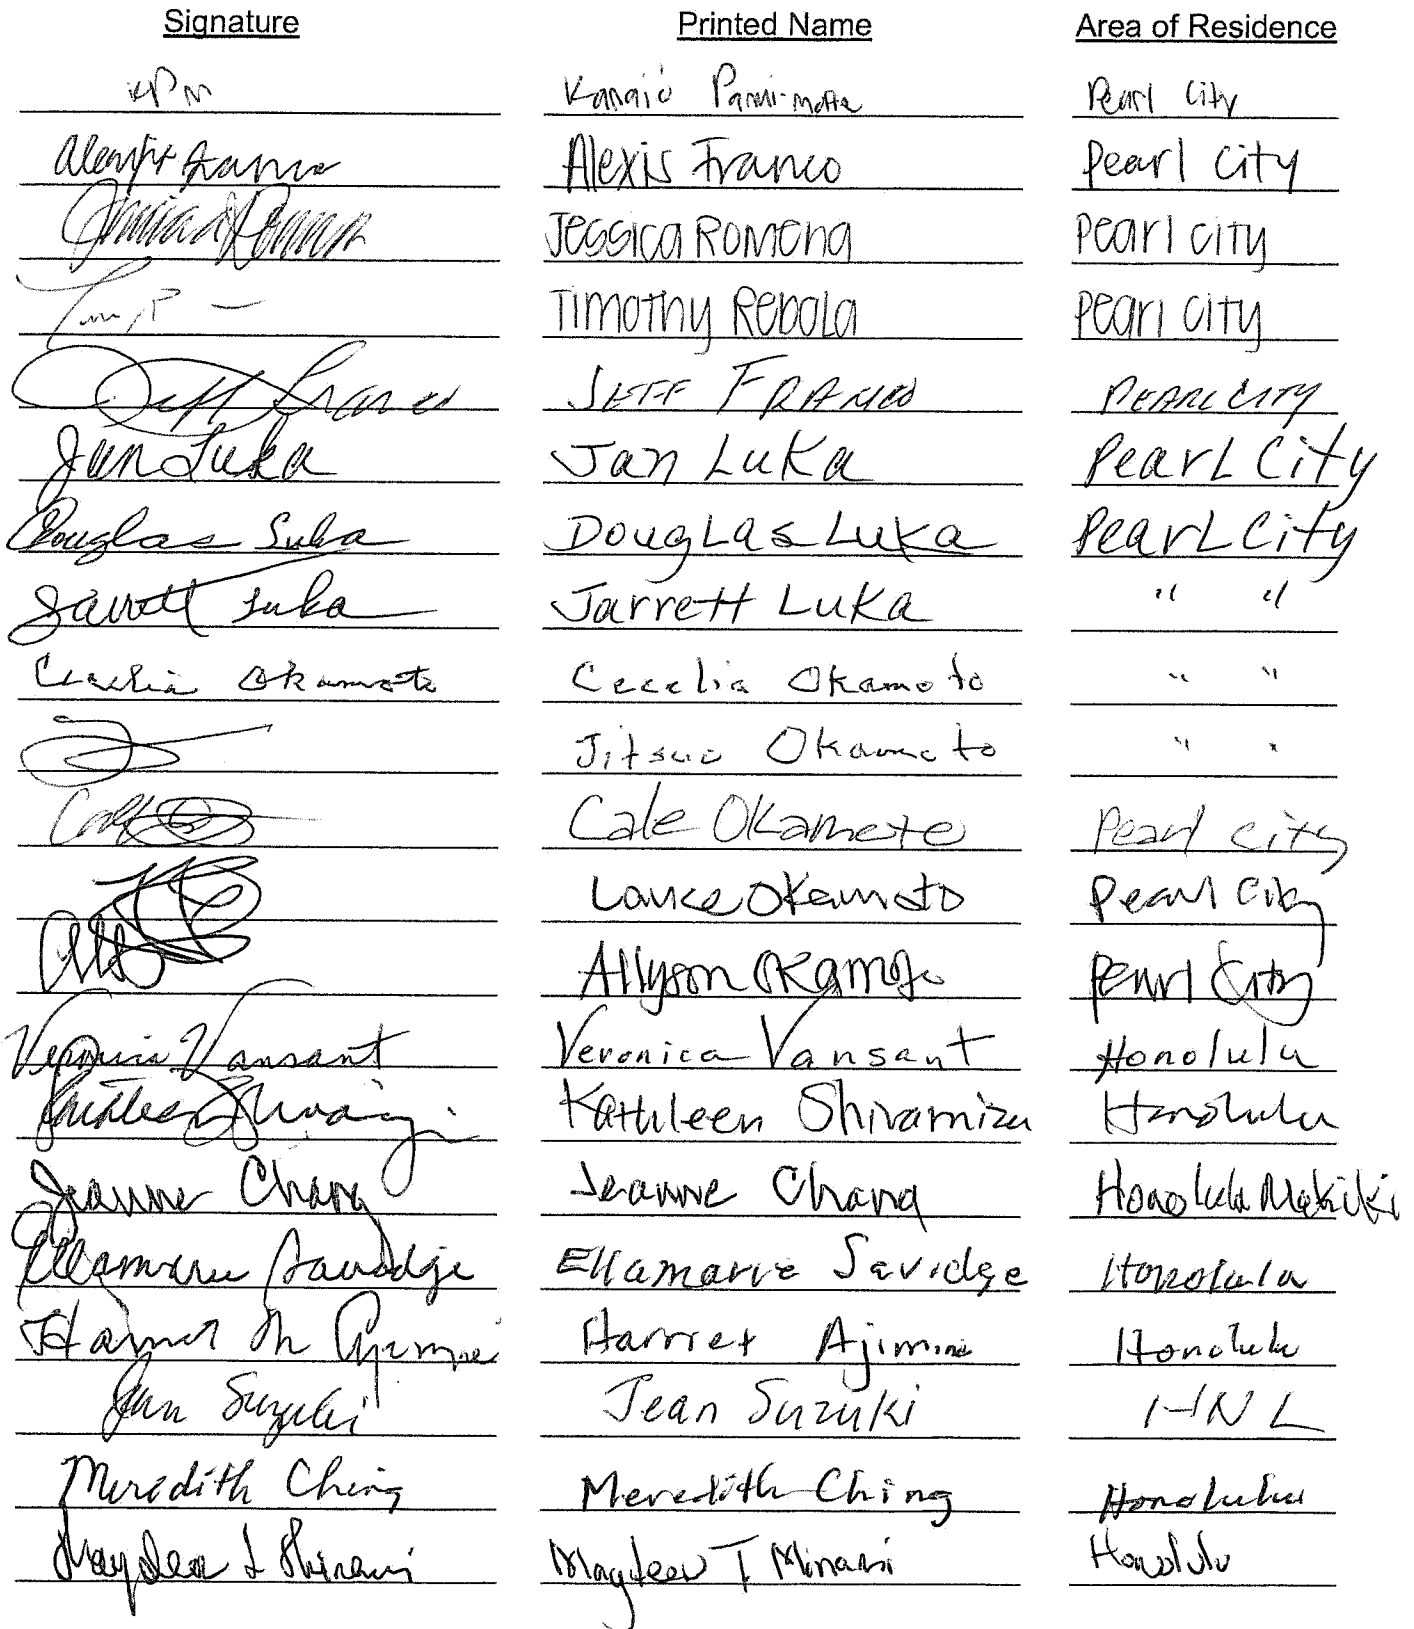 Signature Printed Name Area of Residence
KPM Pearl City
Alexis Franco Alexis Franco Pearl City
Jessica Romena Pearl City
Timothy Rebola Pearl City
Jeff Franco Jeff Franco Pearl City
Jan Luka Jan Luka Pearl City
Douglas Luka Douglas Luka Pearl City
Jarrett Luka Jarrett Luka " "
Cecelia Okamoto Cecelia Okamoto " "
Jitsuo Okamoto " "
Cale Okamoto Pearl City
Lance Okamoto Pearl City
Allyson Okamoto Pearl City
Veronica Vansant Veronica Vansant Honolulu
Kathleen Shiramizu Honolulu
Jeanne Chang Jeanne Chang Honolulu Makiki
Ellamarie Savidge Ellamarie Savidge Honolulu
Harriet M Ajimine Harriet Ajimine Honolulu
Jean Suzuki Jean Suzuki HNL
Meredith Ching Meredith Ching Honolulu
T Honolulu